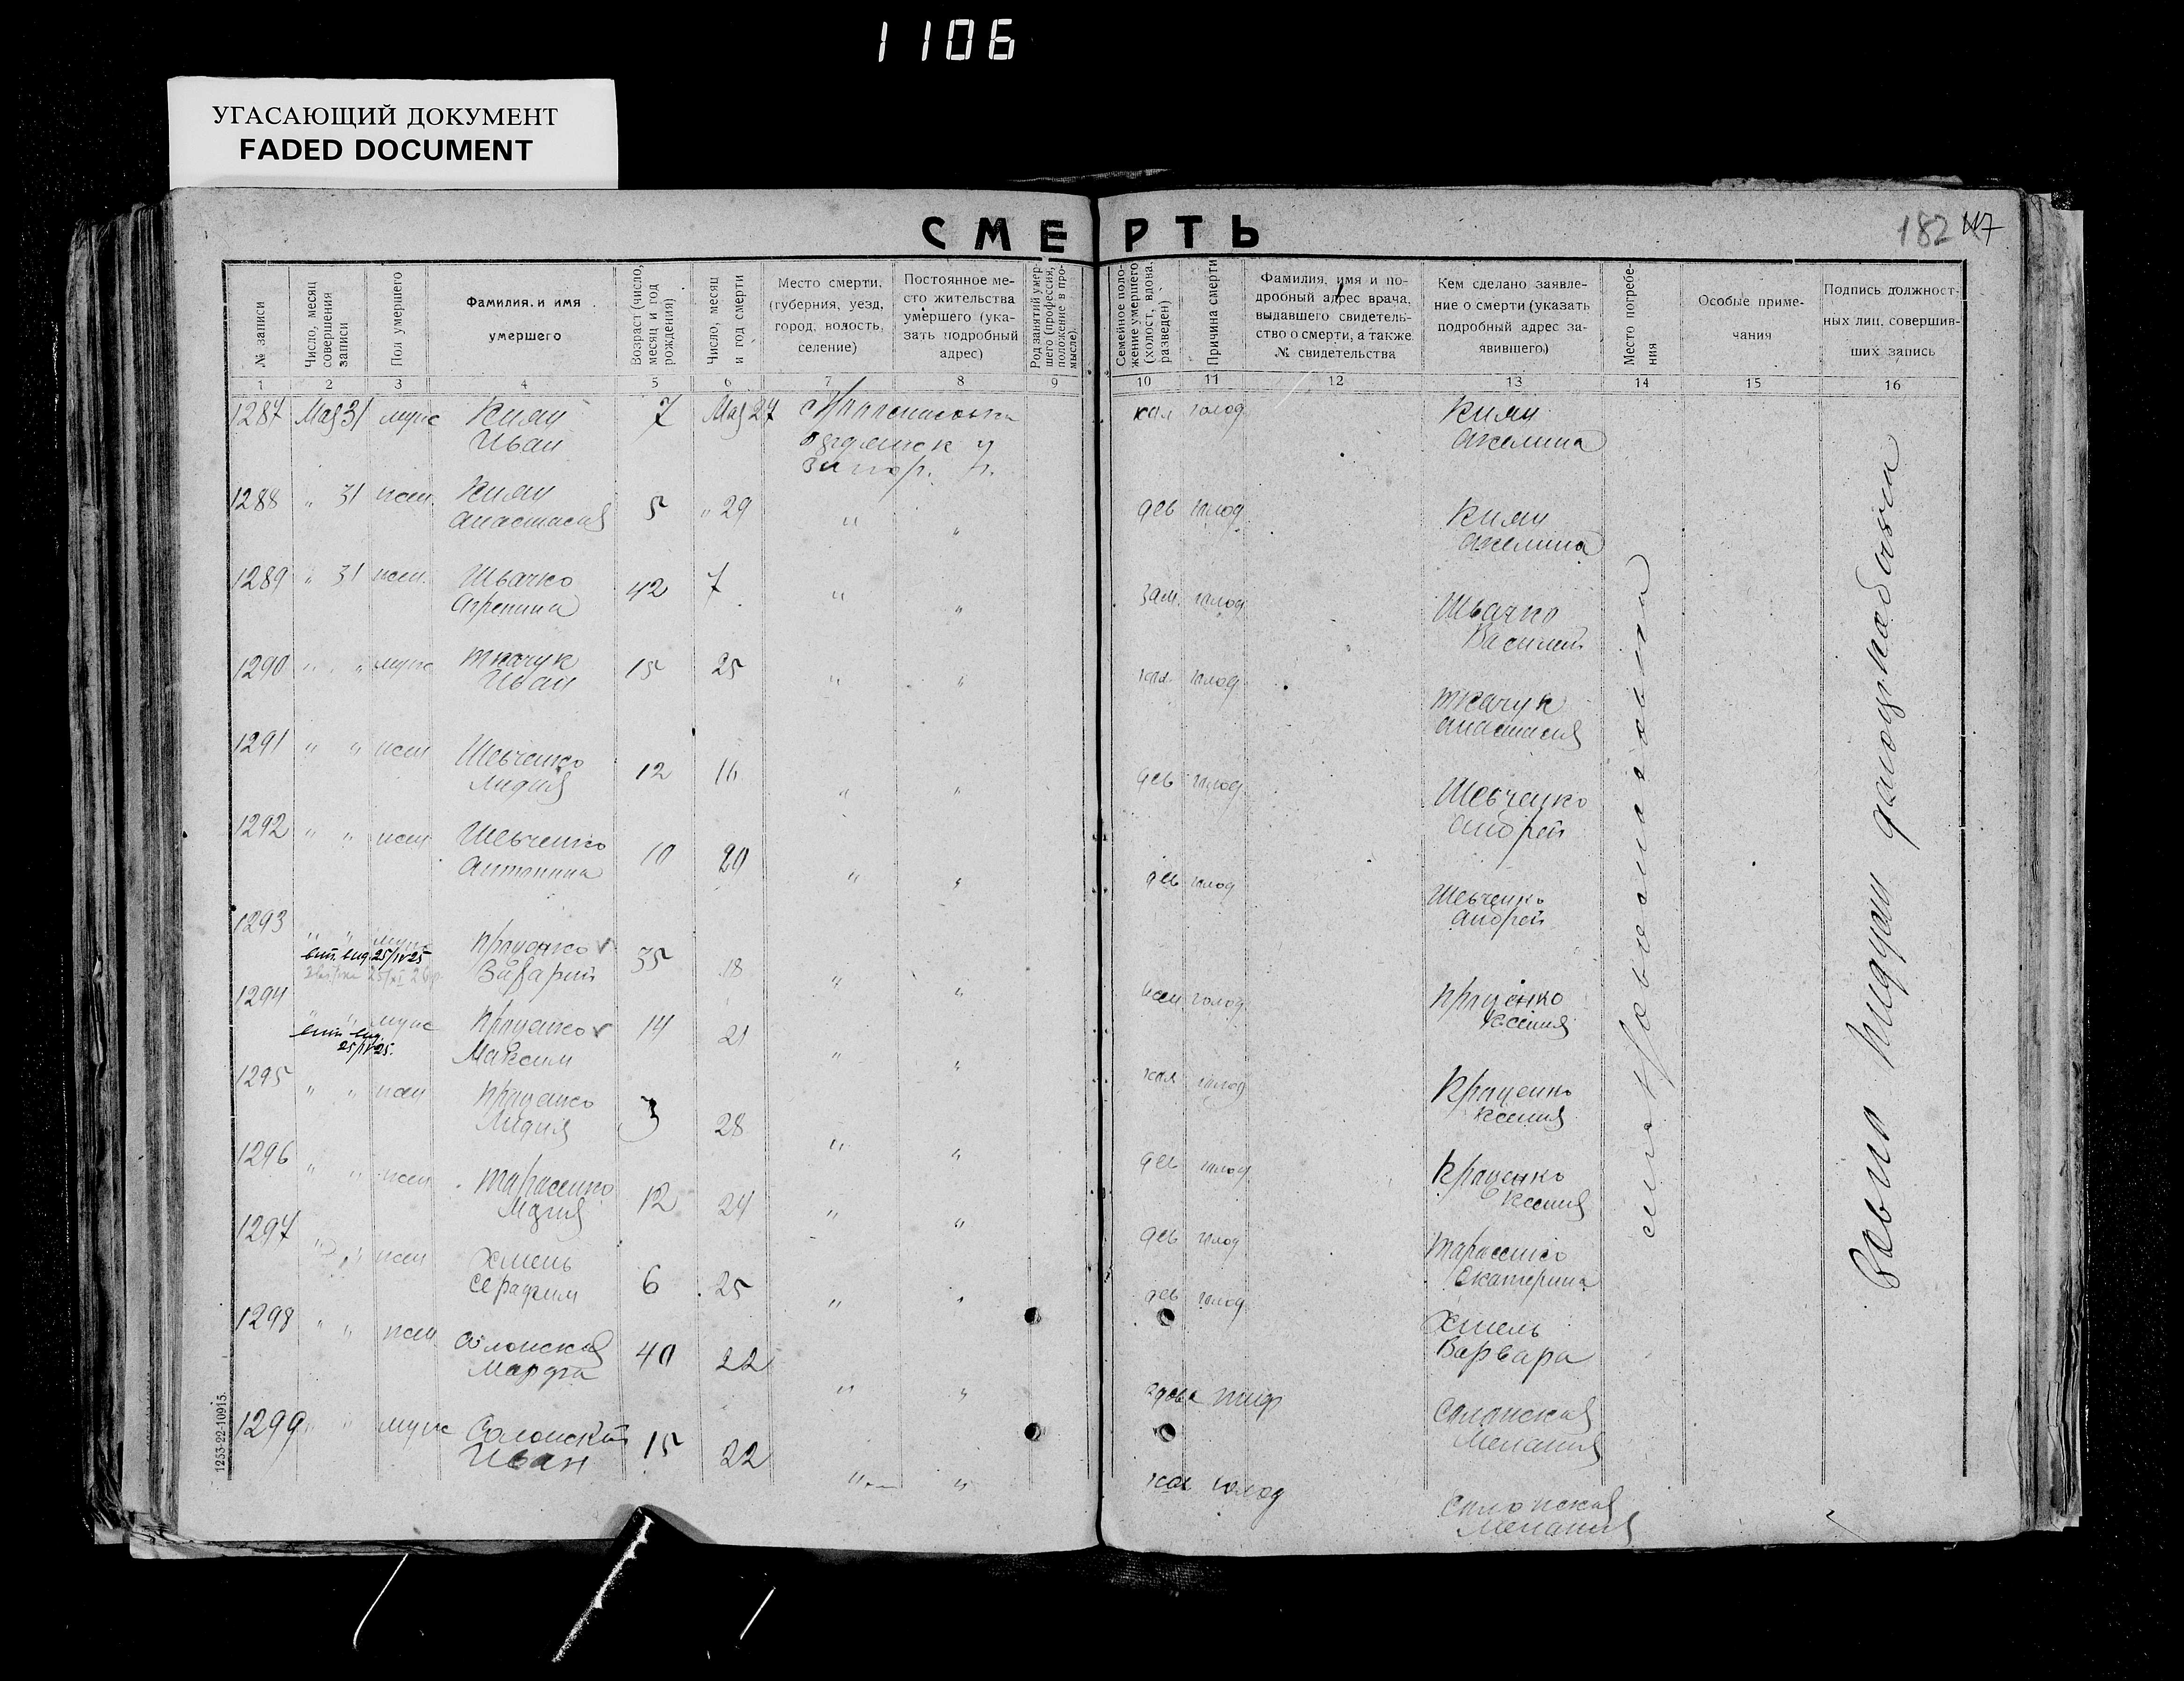 1106
УГАСАЮЩИЙ ДОКУМЕНТ
FADED DOCUMENT
СМЕРТЬ
182 117
№ записи
Число, месяц совершения записи
Пол умершего
Фамилия и имя умершего
Возраст (число, месяц и год рождения)
Число, месяц и год смерти
Место смерти. (губерния, уезд, город, волость, селение)
Постоянное место жительства умершего (указать подробный адрес)
Род занятий умершего (профессия, положение в промысле).
Семейное положение умершего (холост, вдова. разведен)
Причина смерти
Фамилия, имя и подробный адрес врача, выдавшего свидетельство о смерти, а также № свидетельства
Кем сделано заявление о смерти (указать подробный адрес заявившего)
Место погребения
Особые примечания
Подпись должностных лиц, совершивших запись
1 2 3 4 5 6 7 8 9 10 11 12 13 14 15 16
1287 Мая 31 муж Иван 7 Мая 27 хол голод
1288 " 31 жен. Анастасия 5 " 29 " " дев голод
1289 " 31 жен. Швачко Агрепина 42 7 " " зам. голод Швачко Василий
1290 " " муж Ткачук Иван 15 25 " " хол. голод Ткачук Анастасия
1291 " " жен Шевченко Лидия 12 16 " " дев голод Шевченко Андрей
1292 " " жен Шевченко Антонина 10 20 " " дев голод Шевченко Андрей
1293 " " муж 35 18 " " жен голод Ксения
25/IV 25
1294 " " муж Максим 14 21 " " хол голод Ксения
25/IV 25.
1295 " " жен Лидия 3 28 " " дев голод Ксения
1296 " " жен Тарасенко Мария 12 24 " " дев голод Тарасенко Екатерина
1297 " " жен Хмель Серафим 6 25 " " дев голод Хмель Варвара
1298 " " жен Солонская Марфа 40 22 " " вдова тиф Солонская Мелания
1299 " " муж Солонский Иван 15 22 " " хол голод Солонская Мелания
1253-22-10915.